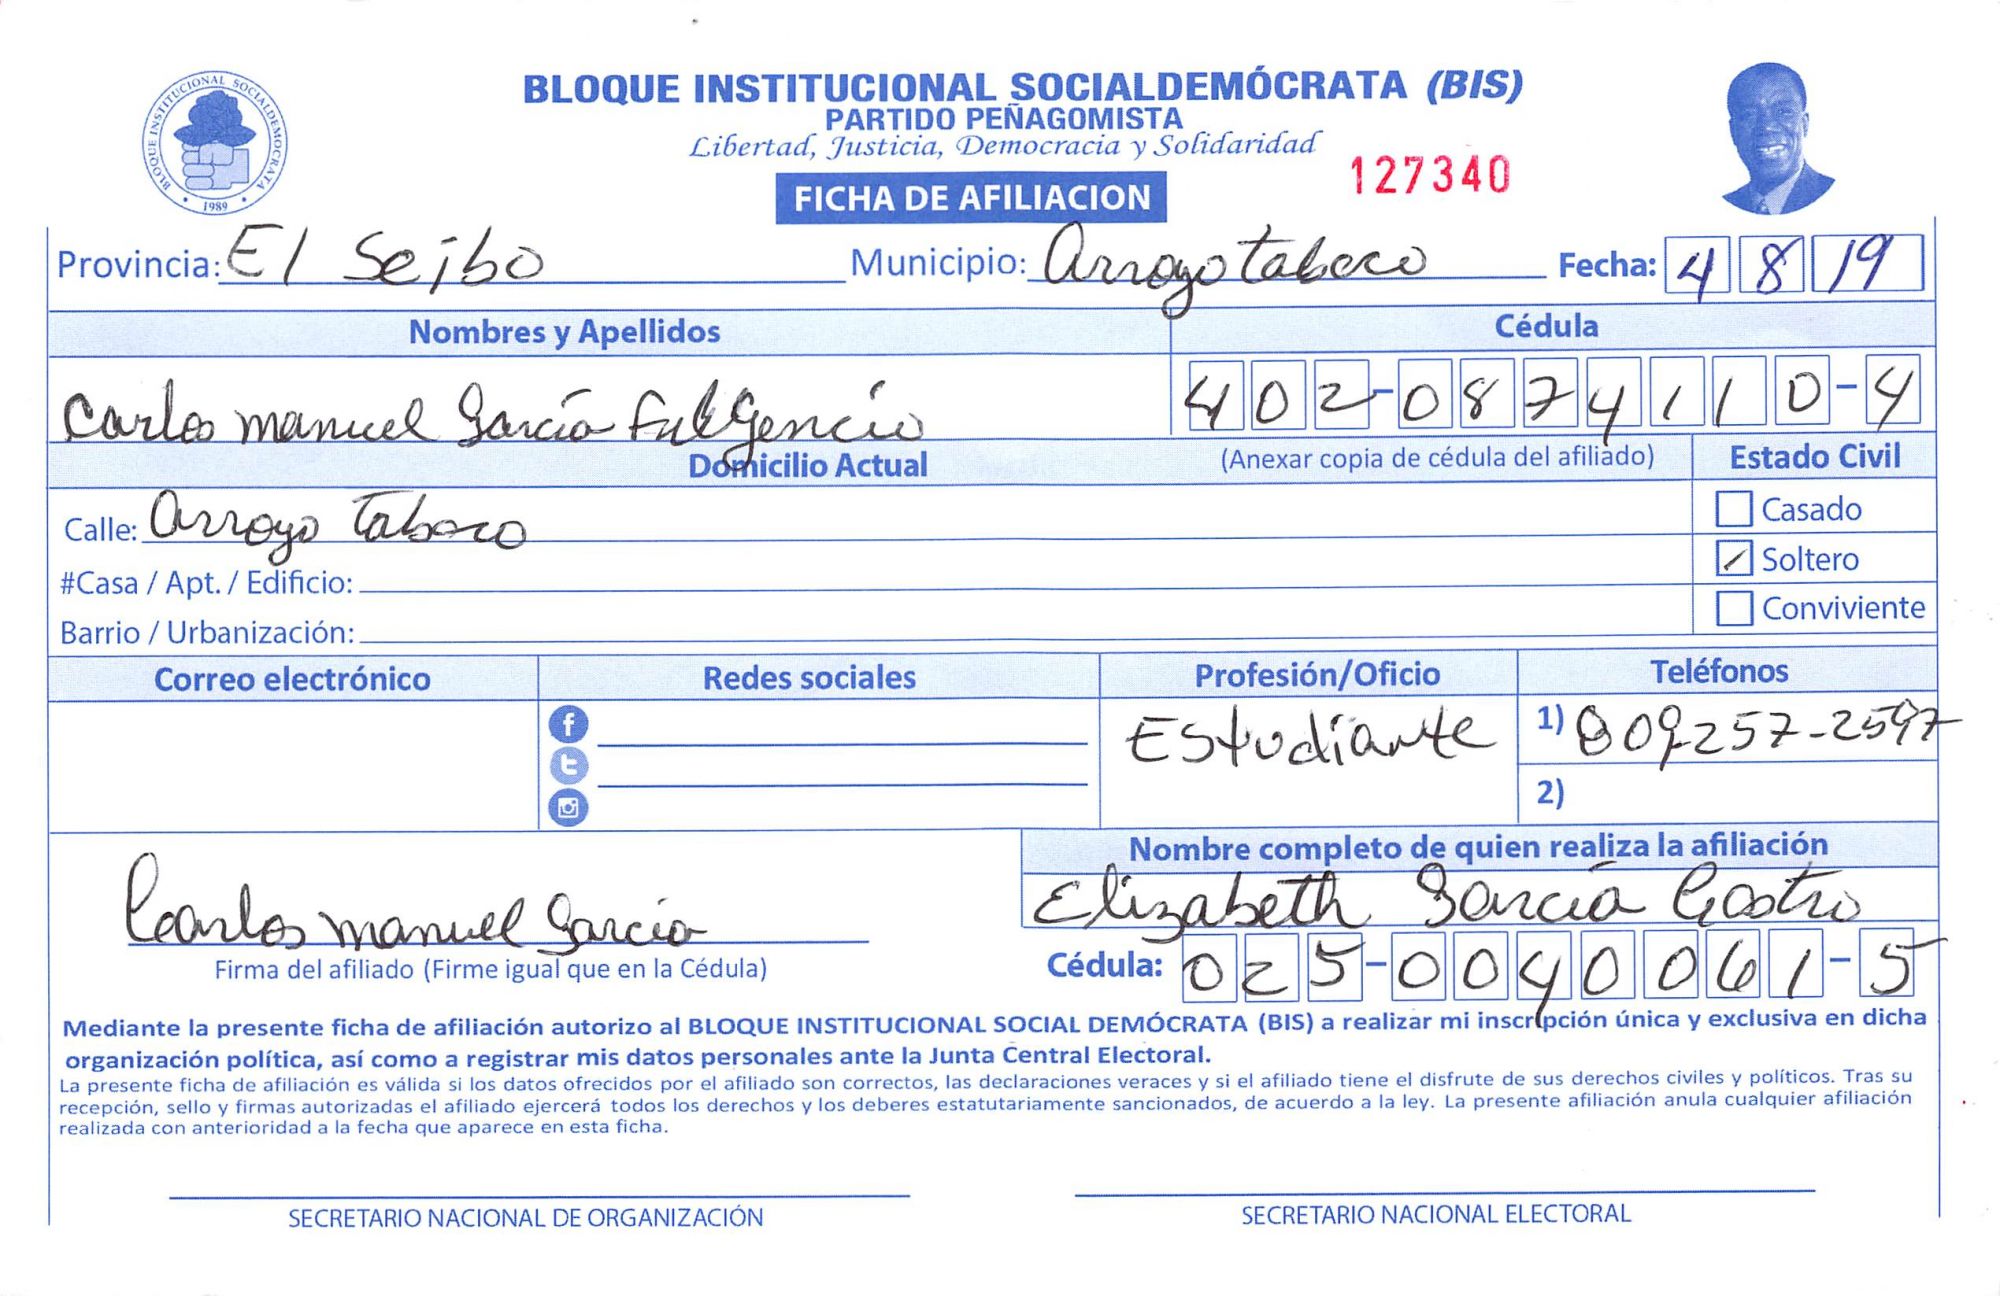 BLOQUE INSTITUCIONAL SOCIALDEMOCRATA
1989
BLOQUE INSTITUCIONAL SOCIALDEMÓCRATA (BIS)
PARTIDO PEÑAGOMISTA
Libertad, Justicia, Democracia y Solidaridad
127340
FICHA DE AFILIACION
Provincia: El Seibo Municipio: Arroyo tabaco Fecha: 4 8 19
Nombres y Apellidos Cédula
Carlos manuel García FulGencio 402-0874110-4
Domicilio Actual (Anexar copia de cédula del afiliado) Estado Civil
Calle: Arroyo Tabaco Casado
#Casa / Apt. / Edificio: Soltero
Barrio / Urbanización: Conviviente
Correo electrónico Redes sociales Profesión/Oficio Teléfonos
Estudiante 1) 809-257-2597
2)
Nombre completo de quien realiza la afiliación
Carlos manuel García Elizabeth García Castro
Firma del afiliado (Firme igual que en la Cédula) Cédula: 025-0040061-5
Mediante la presente ficha de afiliación autorizo al BLOQUE INSTITUCIONAL SOCIAL DEMÓCRATA (BIS) a realizar mi inscripción única y exclusiva en dicha
organización política, así como a registrar mis datos personales ante la Junta Central Electoral.
La presente ficha de afiliación es válida si los datos ofrecidos por el afiliado son correctos, las declaraciones veraces y si el afiliado tiene el disfrute de sus derechos civiles y políticos. Tras su
recepción, sello y firmas autorizadas el afiliado ejercerá todos los derechos y los deberes estatutariamente sancionados, de acuerdo a la ley. La presente afiliación anula cualquier afiliación
realizada con anterioridad a la fecha que aparece en esta ficha.
SECRETARIO NACIONAL DE ORGANIZACIÓN SECRETARIO NACIONAL ELECTORAL